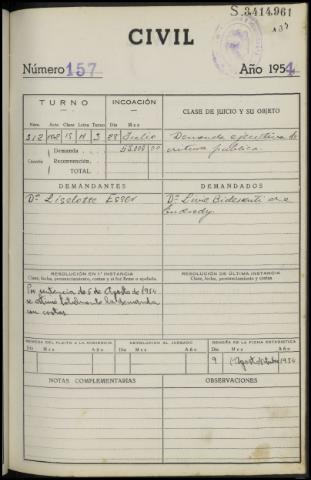 S.3414.961
CIVIL
Número 157
Año 1954
TURNO
INCOACIÓN
CLASE DE JUICIO Y SU OBJETO
Núm. Acta Clase Letra Turno Día Mes
312 15 H 3 28 Julio
Demanda ejecutiva de
Demanda 55.000 00
Cuantía Reconvención
TOTAL
DEMANDANTES
DEMANDADOS
Dª Liselotte Esser
RESOLUCIÓN EN 1ª INSTANCIA
Clase, fecha, pronunciamiento, costas y si fué firme o apelada.
RESOLUCIÓN DE ÚLTIMA INSTANCIA
Clase, fecha, pronunciamiento y costas
Por sentencia de 5 de Agosto de 1954
se estimó totalmente la demanda
con costas
REMESA DEL PLEITO A LA AUDIENCIA
DEVOLUCIÓN AL JUZGADO
REMISIÓN DE LA FICHA ESTADÍSTICA
Día Mes Año
Día Mes Año
Día Mes Año
9 1954
NOTAS COMPLEMENTARIAS
OBSERVACIONES